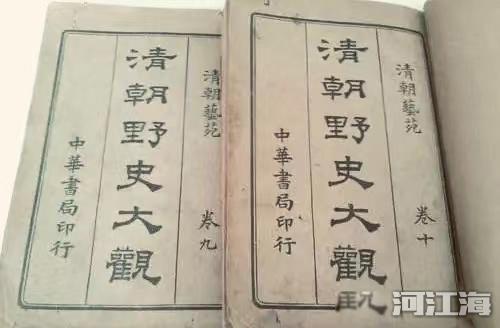 清朝藝苑 卷九
清朝野史大觀
中華書局印行
清朝藝苑 卷十
清朝野史大觀
中華書局印行
河江海